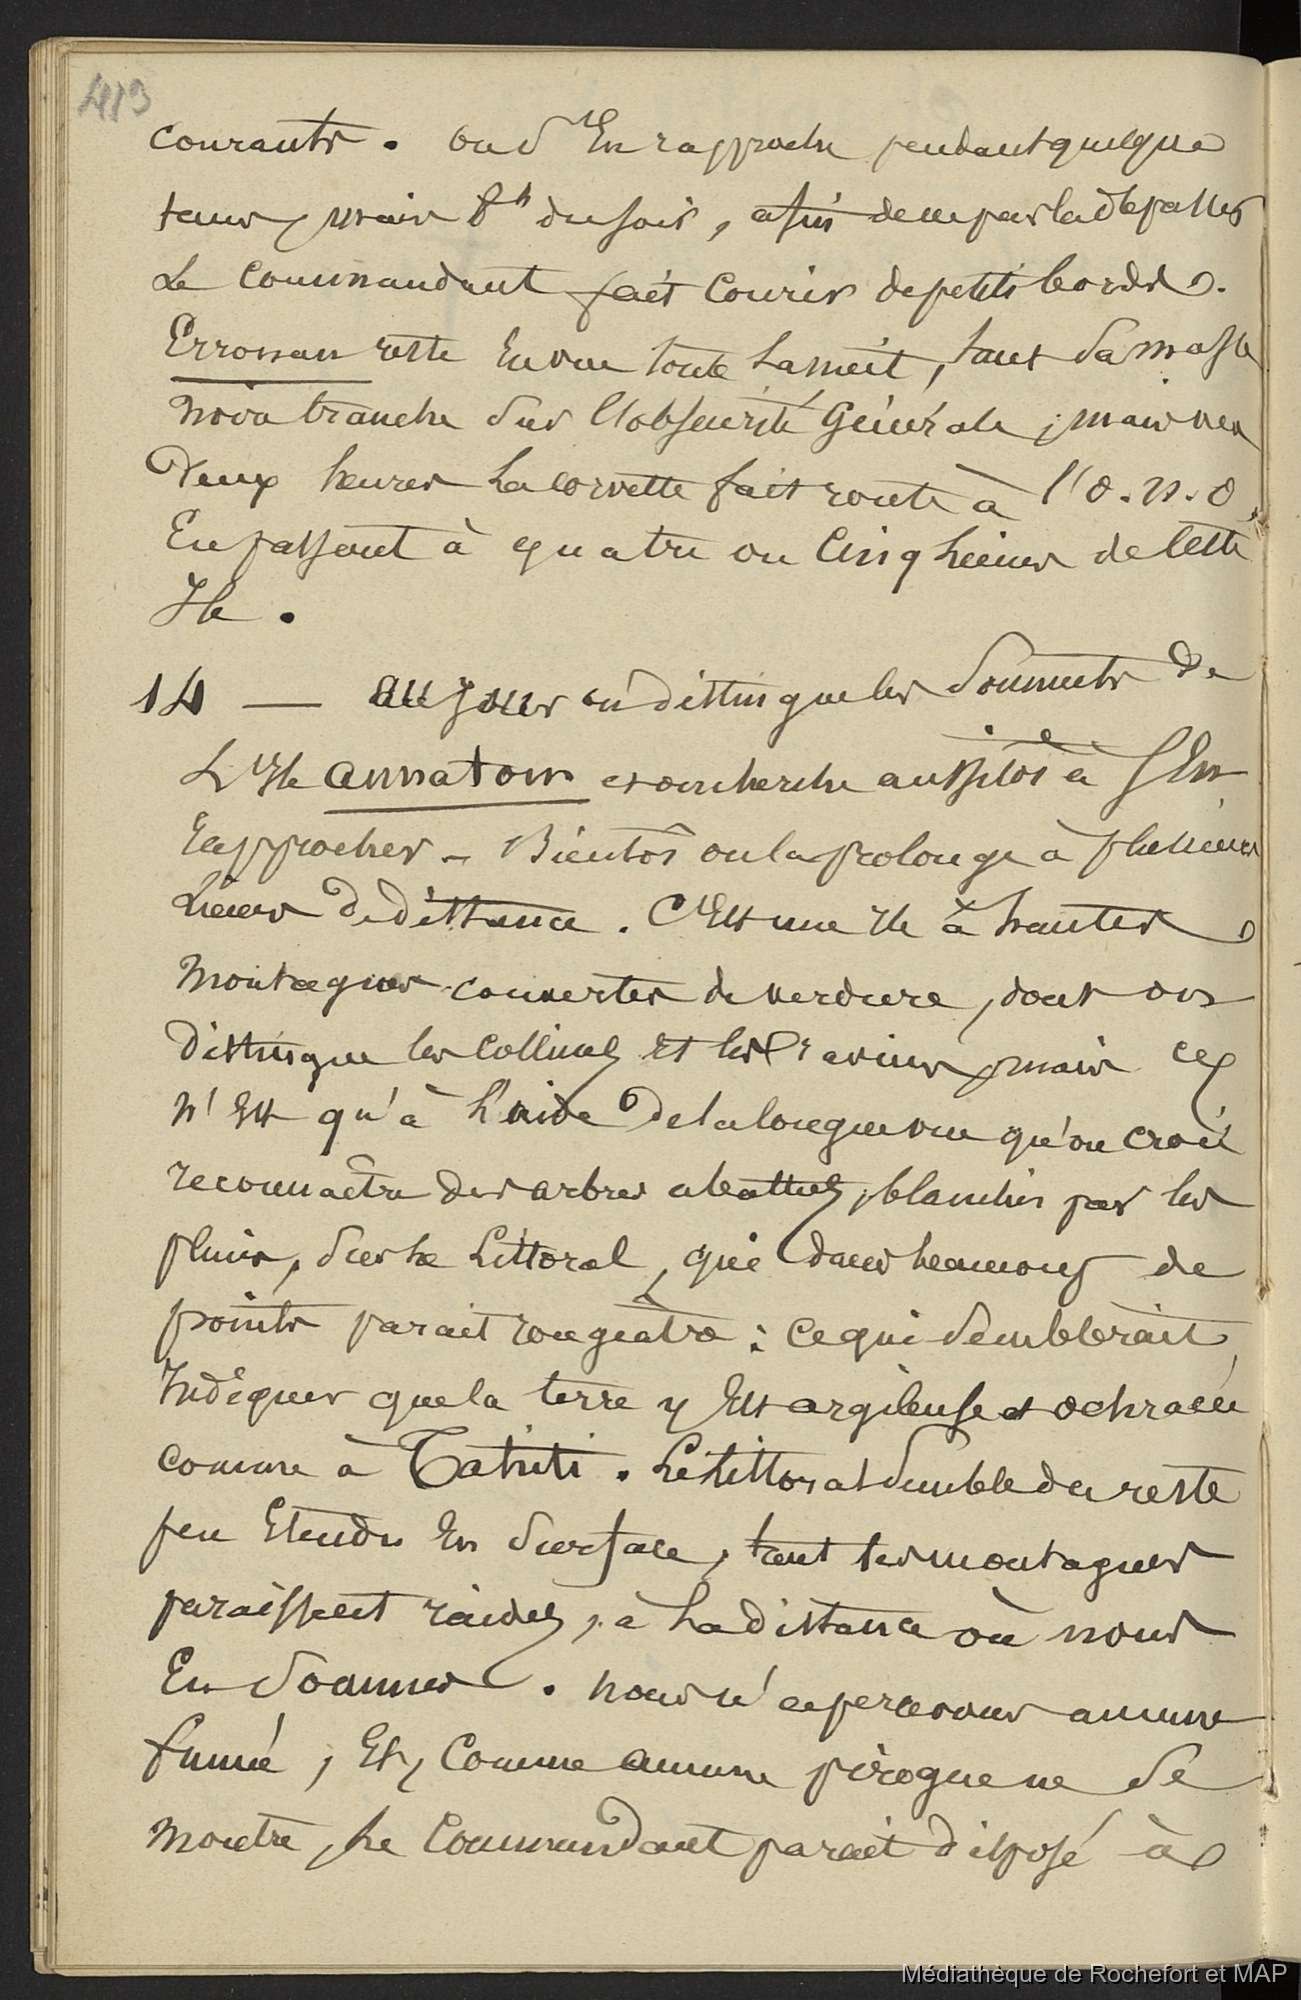 413
courants. on s'En rapproche pendant quelque
temps, mais 8h du soir, afin de ne pas la dépasser
Le Commandant fait Courir de petits bords.
Erronan reste En vue toute La nuit, tant Sa masse
noire tranche Sur l'obscurité Générale ; mais vers
Deux heures La corvette fait route à l'O.N.O,
En passant à quatre ou Cinq Lieues de Cette
Ile.
14 — au jour on distingue les Sommets de
L'Ile annatom et on cherche aussitôt à S'En
Rapprocher - Bientôt on la prolonge à plusieurs
Lieues De distance. C'Est une Ile à hautes
Montagnes couvertes de verdure, dont on
Distingue les Collines Et les ravins, mais ce
n'Est qu'à L'aide De la longue vue qu'on croit
reconnaître des arbres abattus, blanchis par les
pluies, Sur Le Littoral, qui dans beaucoup de
points parait rougeâtre : ce qui Semblerait
Indiquer que la terre y Est argileuse et ochracée
comme à Tahiti. Le Littoral Semble du reste
peu Etendu En Surface, tant les montagnes
paraissent raides, à La distance où nous
En Sommes. nous n'apercevons aucune
fumée, Et, Comme aucune pirogue ne Se
Montre, Le Commandant parait disposé à
Médiathèque de Rochefort et MAP